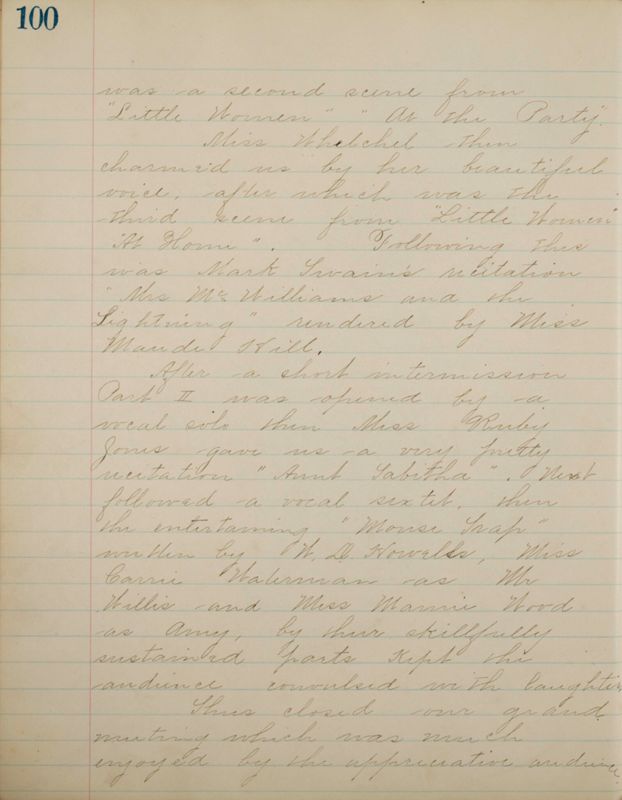 100
was a second scene from
"Little Women" "At the Party".
Miss Whelchel then
charmed us by her beautiful
voice, after which was the
third scene from "Little Women"
"At Home". Following this
was Mark Twain's recitation
"Mrs McWilliams and the
Lightning" rendered by Miss
Maude Hill.
After a short intermission
Part II was opened by a
vocal solo then Miss Ruby
Jones gave us a very pretty
recitation "Aunt Tabitha". Next
followed a vocal sextet, then
the entertaining "Mouse Trap"
written by W. D. Howells, Miss
Carrie Waterman as Mr
Willis and Miss Mamie Wood
as Amy, by their skillfully
sustained parts kept the
audience convulsed with laughter,
Thus closed our grand
meeting which was much
enjoyed by the appreciative audience.